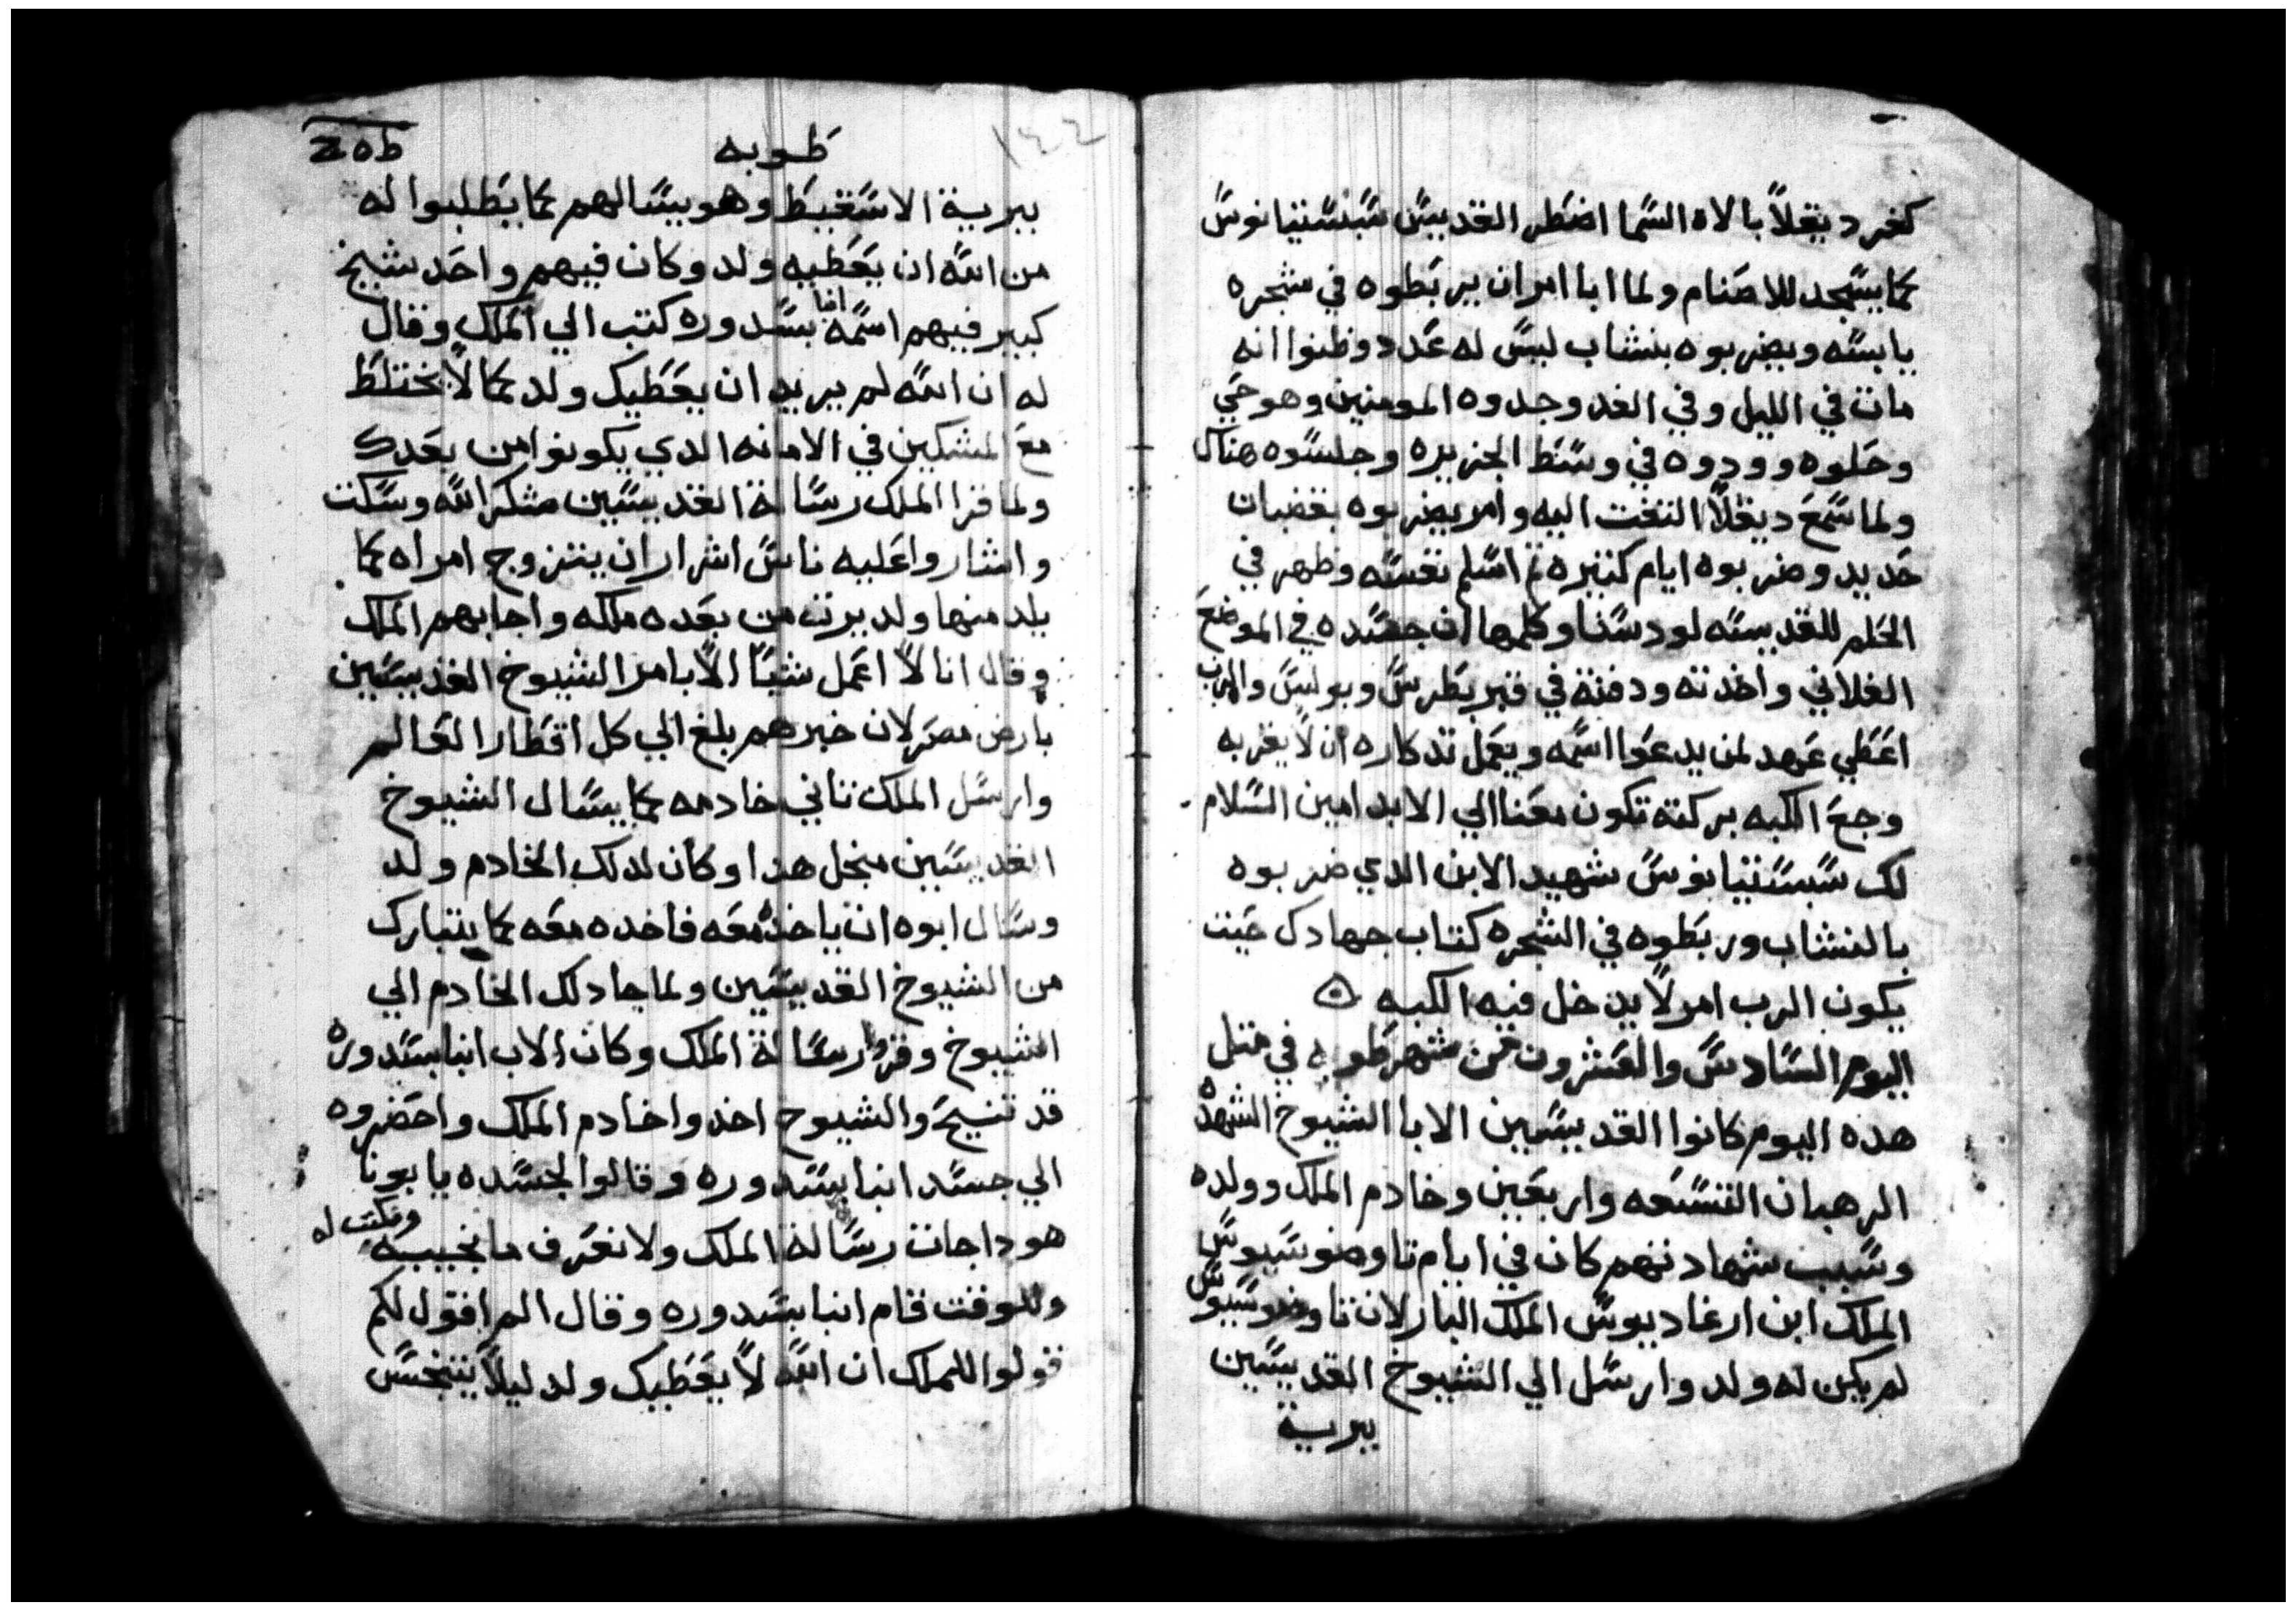 كفر ديقلاً بالاه السما اضطر القديس سبستيانوس
كما يسجد للاصنام ولما ابا امر ان يربطوه في شجره
يابسه ويضربوه بنشاب ليس له عدد وظنوا انه
مات في الليل وفي الغد وجدوه المومنين وهو حي
وحلوه وودوه في وسط الجزيره وجلسوه هناك
ولما سمع ديقلاً التفت اليه وامر يضربوه بقضبان
حديد وضربوه ايام كتيره تم اسلم نفسه وظهر في
الحلم للقديسه لودسنا وكلمها ان جسده في الموضع
الفلاني واخدته ودفنته في قبر بطرس وبولس والرب
اعطي عهد لمن يدعوا اسمه ويعمل تدكاره ان لا يقربه
وجع الكبه بركته تكون معنا الي الابد امين السلام
لك سبستيانوس شهيد الابن الدي ضربوه
بالنشاب وربطوه في الشجره كتاب جهادك حيت
يكون الرب امر لا يدخل فيه الكبه
اليوم السادس والعشرون من شهر طوبه في متل
هده اليوم كانوا القديسين الابا الشيوخ الشهدا
الرهبان التسعه واربعين وخادم الملك وولده
وسبب شهادتهم كان في ايام تاوضوسيوس
الملك ابن ارغاديوس الملك البار لان تاوضوسيوس
لم يكن له ولد وارسل الي الشيوخ القديسين
ببرية
طوبه
١٤٤
ببرية الاسقيط وهو يسالهم كما يطلبوا له
من الله ان يعطيه ولد وكان فيهم واحد شيخ
كبير فيهم اسمه انبا بسدوره كتب الي الملك وقال
له ان الله لم يريد ان يعطيك ولد كما لا يختلط
مع المشكين في الامانه الدي يكونوا من بعدك
ولما قرا الملك رسالة القديسين شكر الله وسكت
واشاروا عليه ناس اشرار ان يتزوج امراه كما
يلد منها ولد يرت من بعده ملكه واجابهم الملك
وقال انا لا اعمل شياً الا بامر الشيوخ القديسين
بارض مصر لان خبرهم بلغ الي كل اقطار العالم
وارسل الملك تاني خادمه كما يسال الشيوخ
القديسين منجل هدا وكان لدلك الخادم ولد
وسال ابوه ان ياخده معه فاخده معه كما يتبارك
من الشيوخ القديسين ولما جا دلك الخادم الي
الشيوخ وقروا رسالة الملك وكان الاب انبا بسدوره
قد تنيح والشيوخ اخدوا خادم الملك واحضروه
الي جسد انبا بسدوره وقالوا لجسده يا بونا
هودا جات رسالة الملك ولا نعرف ما نجيبه ونكتب له
وللوقت قام انبا بسدوره وقال الم اقول لكم
قولوا للملك ان الله لا يعطيك ولد ليلاً يتنجس